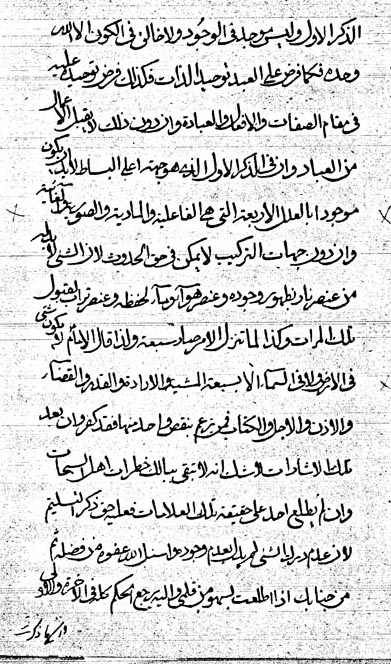 الذكر الاول وليس وجد في الوجود ولا خالق في الكون الا الله
وحده فكما فرض على العبد توحيد الذات فكذلك فرض توحيده عليه
في مقام الصفات والافعال والعبادة وان دون ذلك لا يقبل الاعمال
من العباد وان في الذكر الاول الذي هو جهة اعلى البساط لابد ان يكون
موجودا بالعلل الاربعة التي هي الفاعلية والمادية والصورية والغائية
وان دون جهات التركيب لا يمكن في حق الحدوث لان الشئ لابد له
من عنصر نار لظهور وجوده وعنصر هواء وماء لحفظه وعنصر تراب لقبول
تلك المراتب وكذا لما تنزل الامر صار سبعة ولذا قال الامام لا يكون شئ
في الارض ولا في السماء الا بسبعة المشية والارادة والقدر والقضاء
والاذن والاجل والكتاب فمن زعم بنقص واحد منها فقد كفر وان بعد
تلك الاشارات لا شك انه لا تبقى ببالك خطرات اهل السبحات
وان لم يطلع احد على حقيقة تلك العلامات فعليه حق ذكر التسليم
لان عدم درك الشئ لم يدل بعدم وجوده واسئل الله عفوه من فضله ثم
من جنابك اذا اطلعت بسهو من قلمي واليه يرجع الحكم كله في الاخرة والاولى